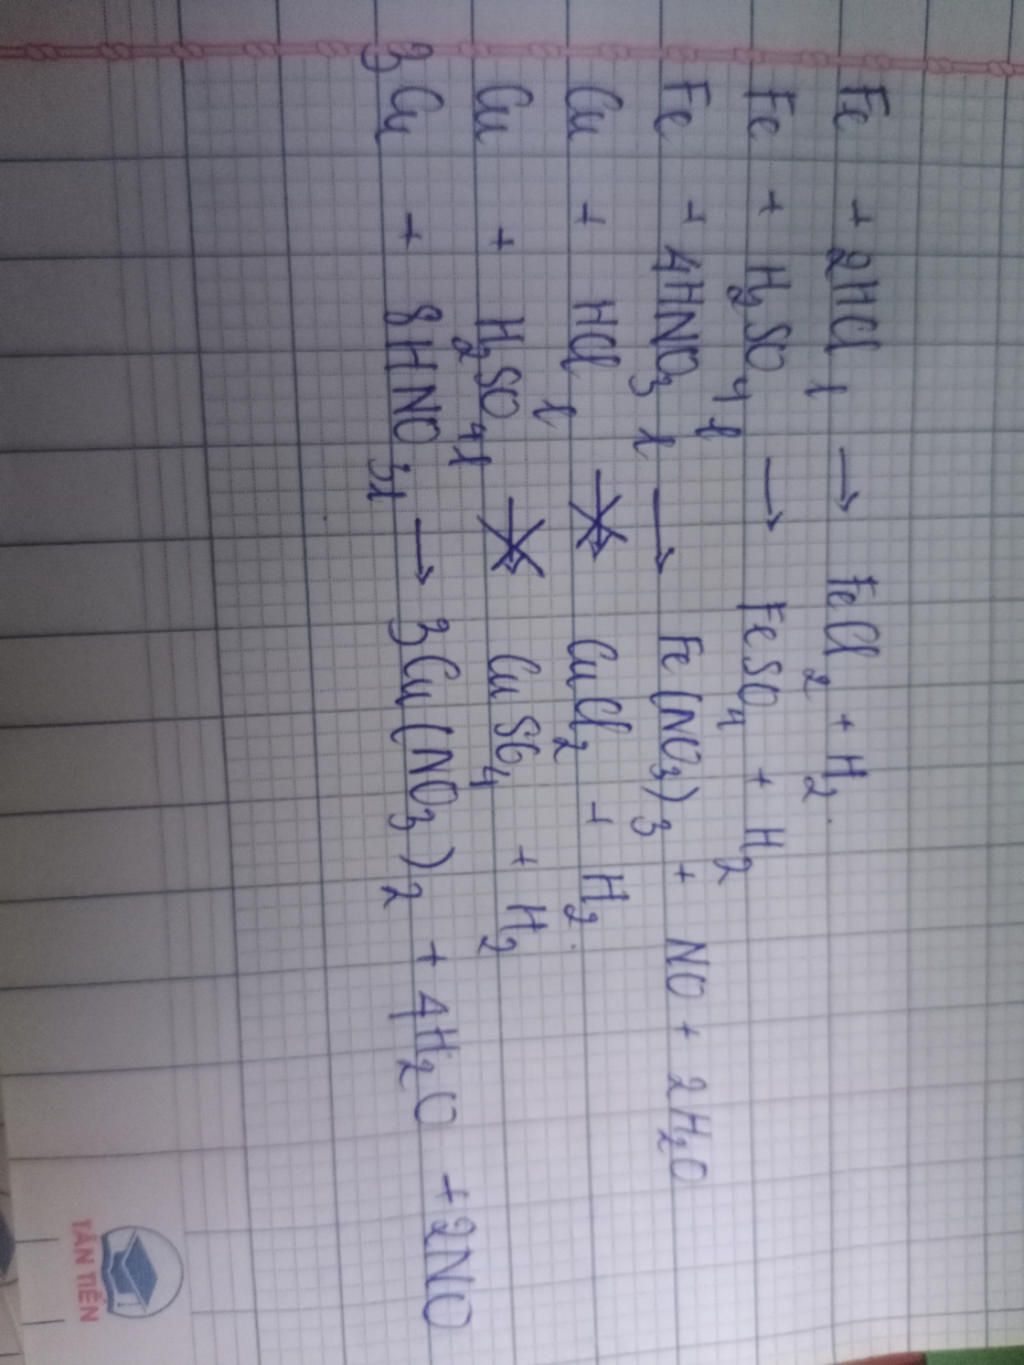 Fe + 2HCl l → FeCl2 + H2.
Fe + H2SO4 l → FeSO4 + H2
Fe + 4HNO3 l → Fe(NO3)3 + NO + 2H2O
Cu + HCl l ↛ CuCl2 + H2.
Cu + H2SO4 l ↛ CuSO4 + H2
3Cu + 8HNO3 l → 3Cu(NO3)2 + 4H2O + 2NO
TÂN TIẾN